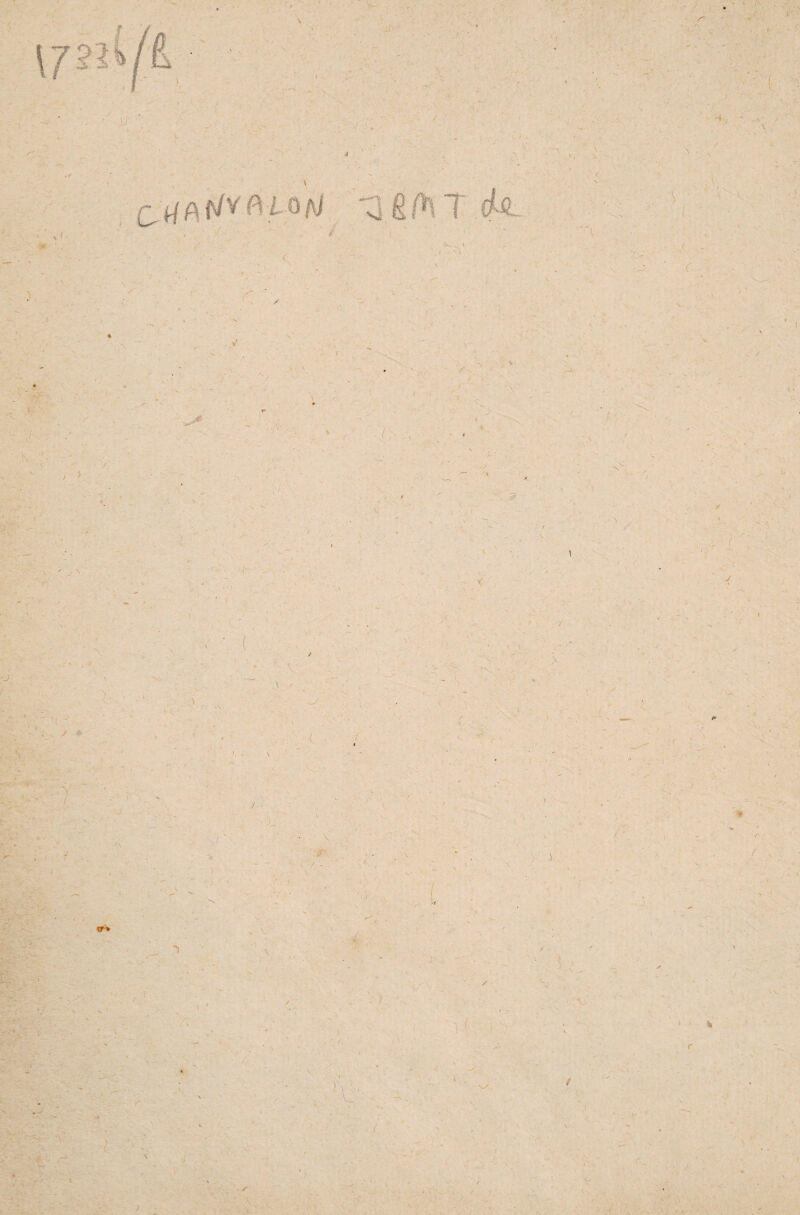 17226/B
CHANVALON JEAN T de